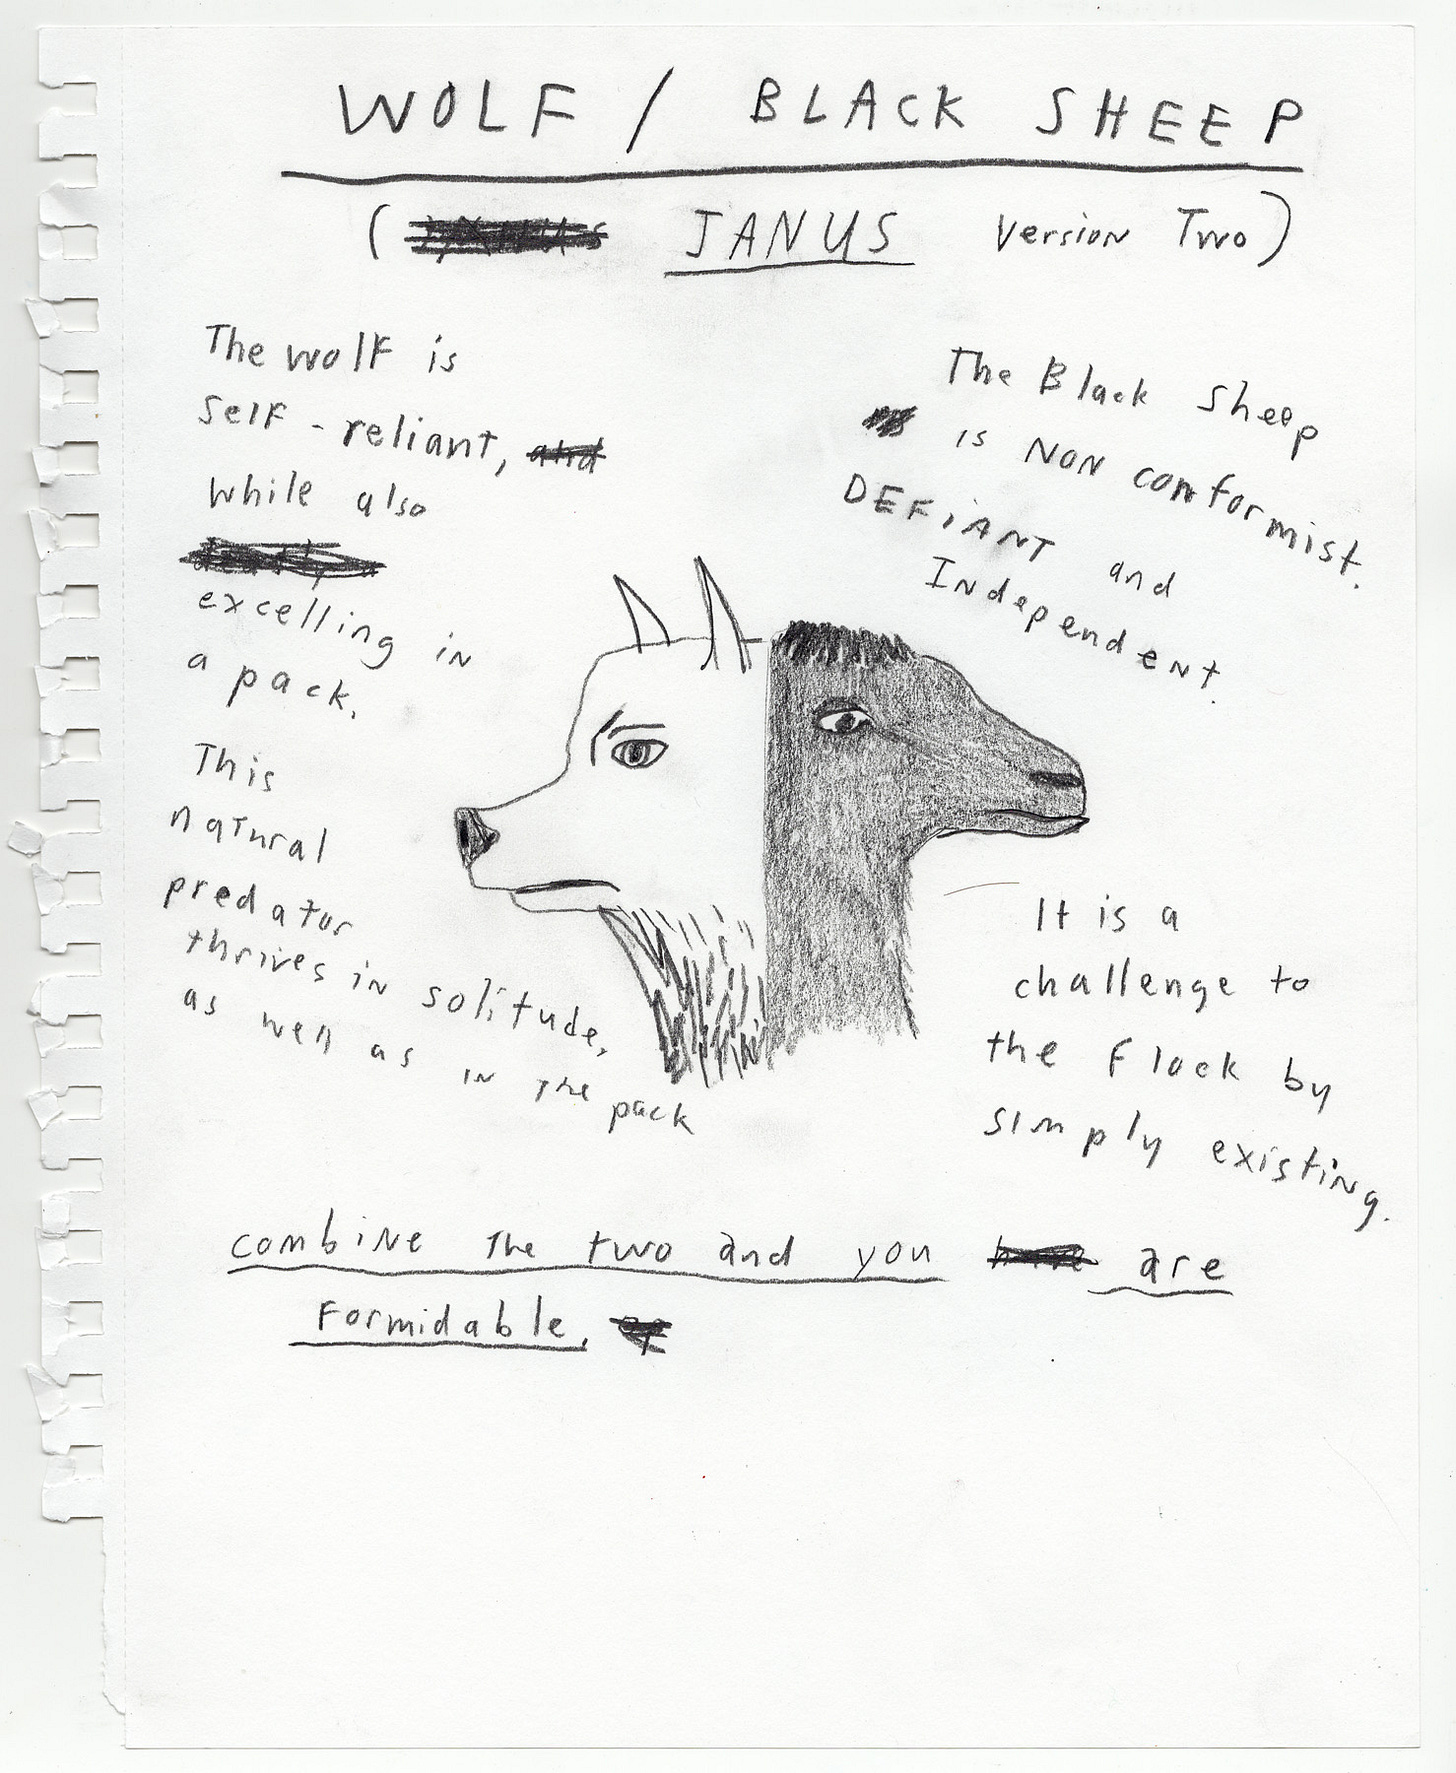 WOLF / BLACK SHEEP
( JANUS Version Two)
The wolf is
self-reliant,
while also
excelling in
a pack.
This
natural
predator
thrives in solitude,
as well as in the pack
The Black Sheep
is NON conformist.
DEFiANT and
Independent.
It is a
challenge to
the Flock by
simply existing.
combine the two and you are
Formidable.